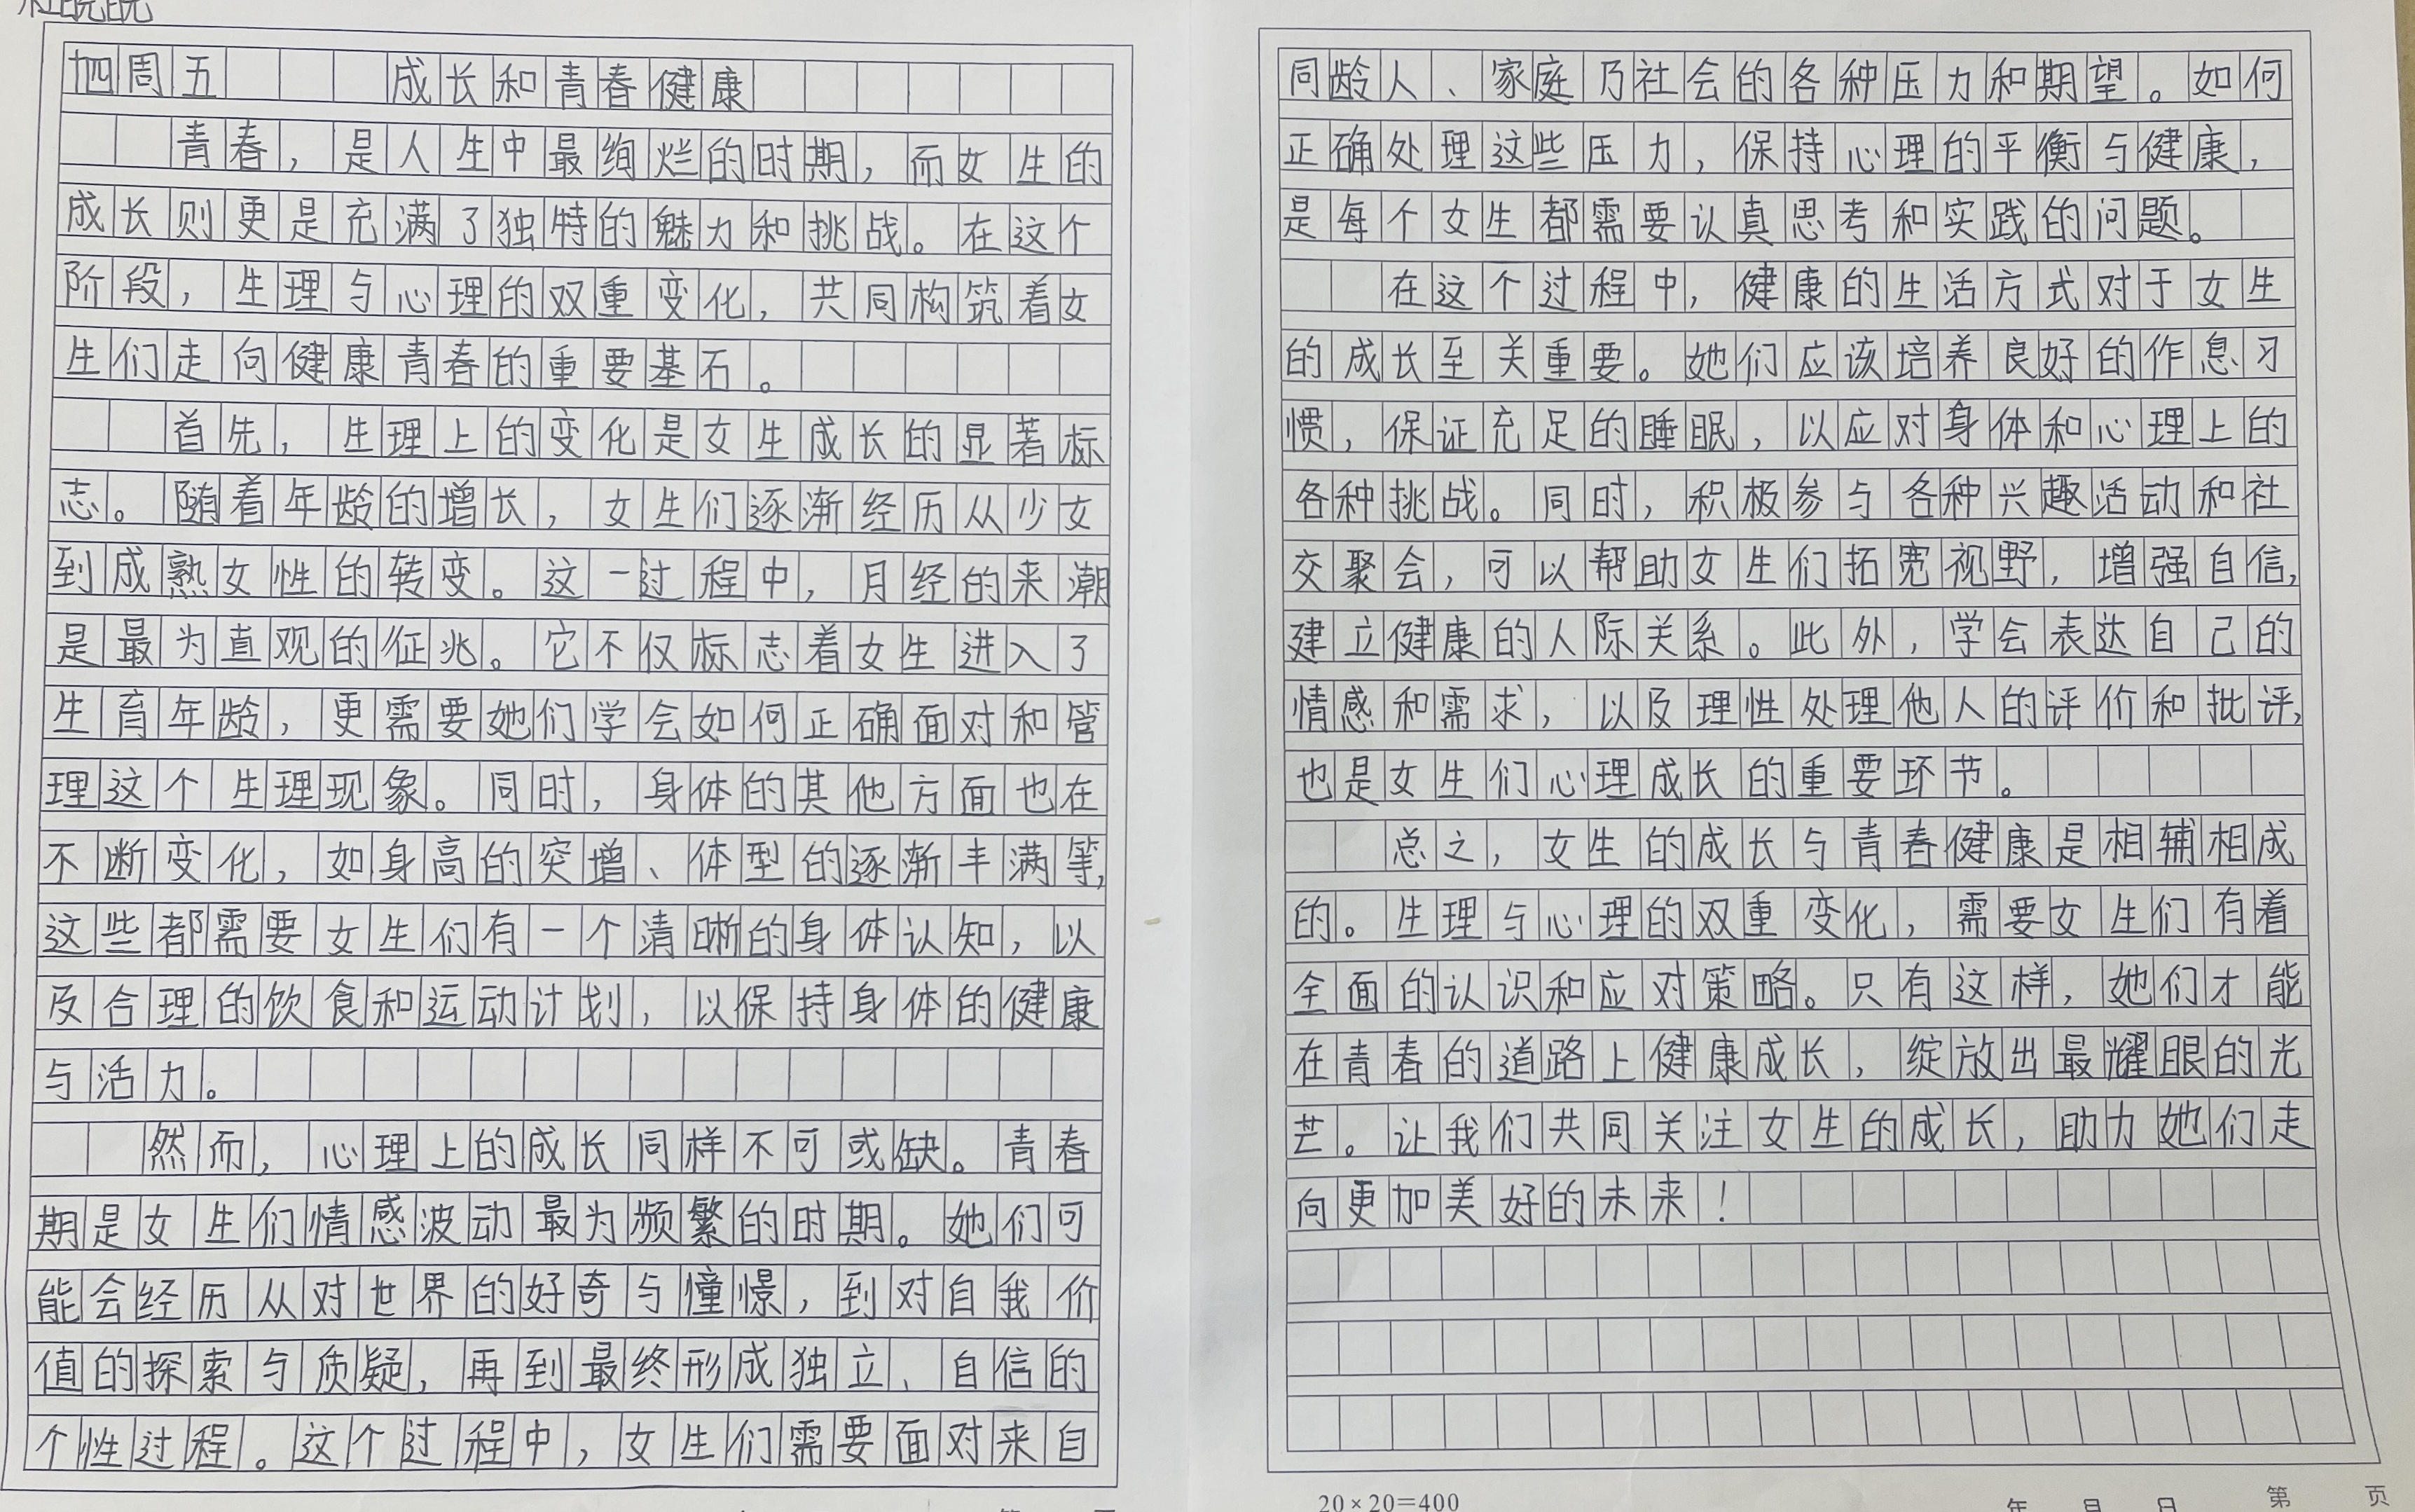 十四周五 成长和青春健康
青春，是人生中最绚烂的时期，而女生的
成长则更是充满了独特的魅力和挑战。在这个
阶段，生理与心理的双重变化，共同构筑着女
生们走向健康青春的重要基石。
首先，生理上的变化是女生成长的显著标
志。随着年龄的增长，女生们逐渐经历从少女
到成熟女性的转变。这一过程中，月经的来潮
是最为直观的征兆。它不仅标志着女生进入了
生育年龄，更需要她们学会如何正确面对和管
理这个生理现象。同时，身体的其他方面也在
不断变化，如身高的突增、体型的逐渐丰满等，
这些都需要女生们有一个清晰的身体认知，以
及合理的饮食和运动计划，以保持身体的健康
与活力。
然而，心理上的成长同样不可或缺。青春
期是女生们情感波动最为频繁的时期。她们可
能会经历从对世界的好奇与憧憬，到对自我价
值的探索与质疑，再到最终形成独立、自信的
个性过程。这个过程中，女生们需要面对来自
同龄人、家庭乃社会的各种压力和期望。如何
正确处理这些压力，保持心理的平衡与健康，
是每个女生都需要认真思考和实践的问题。
在这个过程中，健康的生活方式对于女生
的成长至关重要。她们应该培养良好的作息习
惯，保证充足的睡眠，以应对身体和心理上的
各种挑战。同时，积极参与各种兴趣活动和社
交聚会，可以帮助女生们拓宽视野，增强自信，
建立健康的人际关系。此外，学会表达自己的
情感和需求，以及理性处理他人的评价和批评，
也是女生们心理成长的重要环节。
总之，女生的成长与青春健康是相辅相成
的。生理与心理的双重变化，需要女生们有着
全面的认识和应对策略。只有这样，她们才能
在青春的道路上健康成长，绽放出最耀眼的光
芒。让我们共同关注女生的成长，助力她们走
向更加美好的未来！
20×20=400 年 月 日 第 页